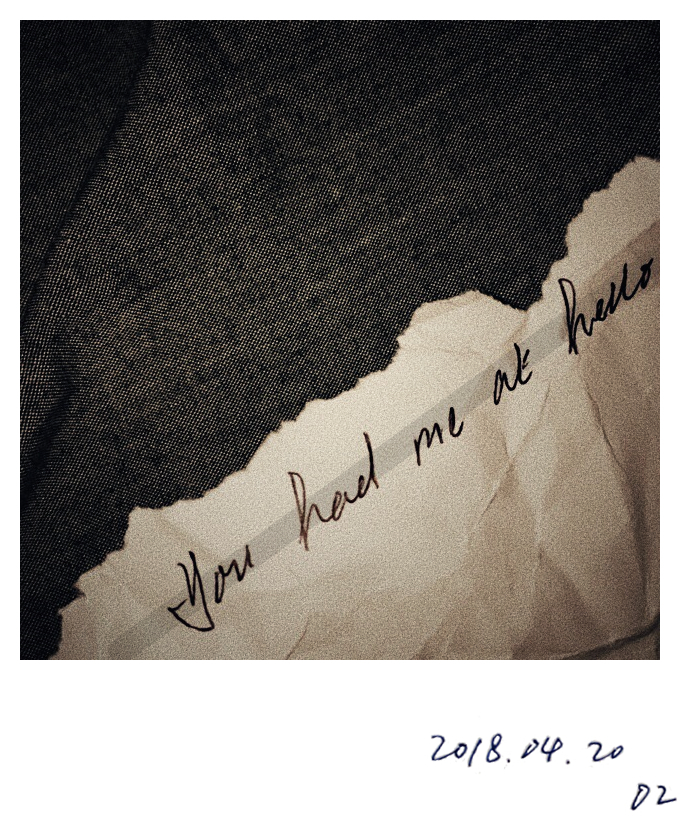 You had me at hello
2018.04.20
02